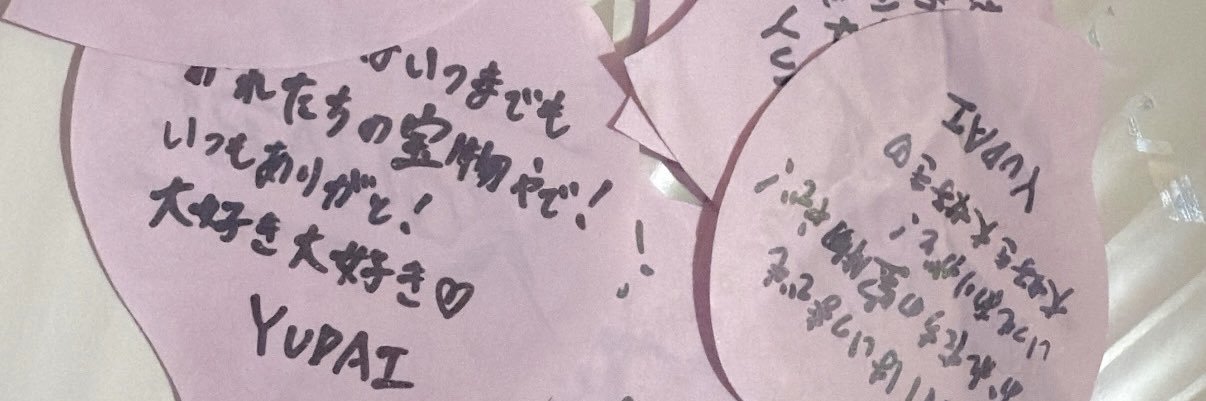 はいつまでも
おれたちの宝物やで!
いつもありがと!
大好き大好き♡
YUDAI
YU
はいつまでも
おれたちの宝物やで!
いつもありがと!
大好き大好き♡
YUDAI